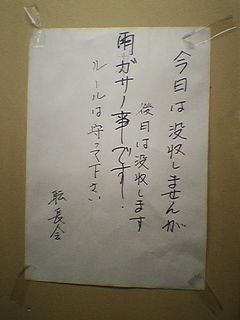 今日は没収しませんが
後日は没収します
雨ガサノ事です!
ルールは守って下さい
転長会